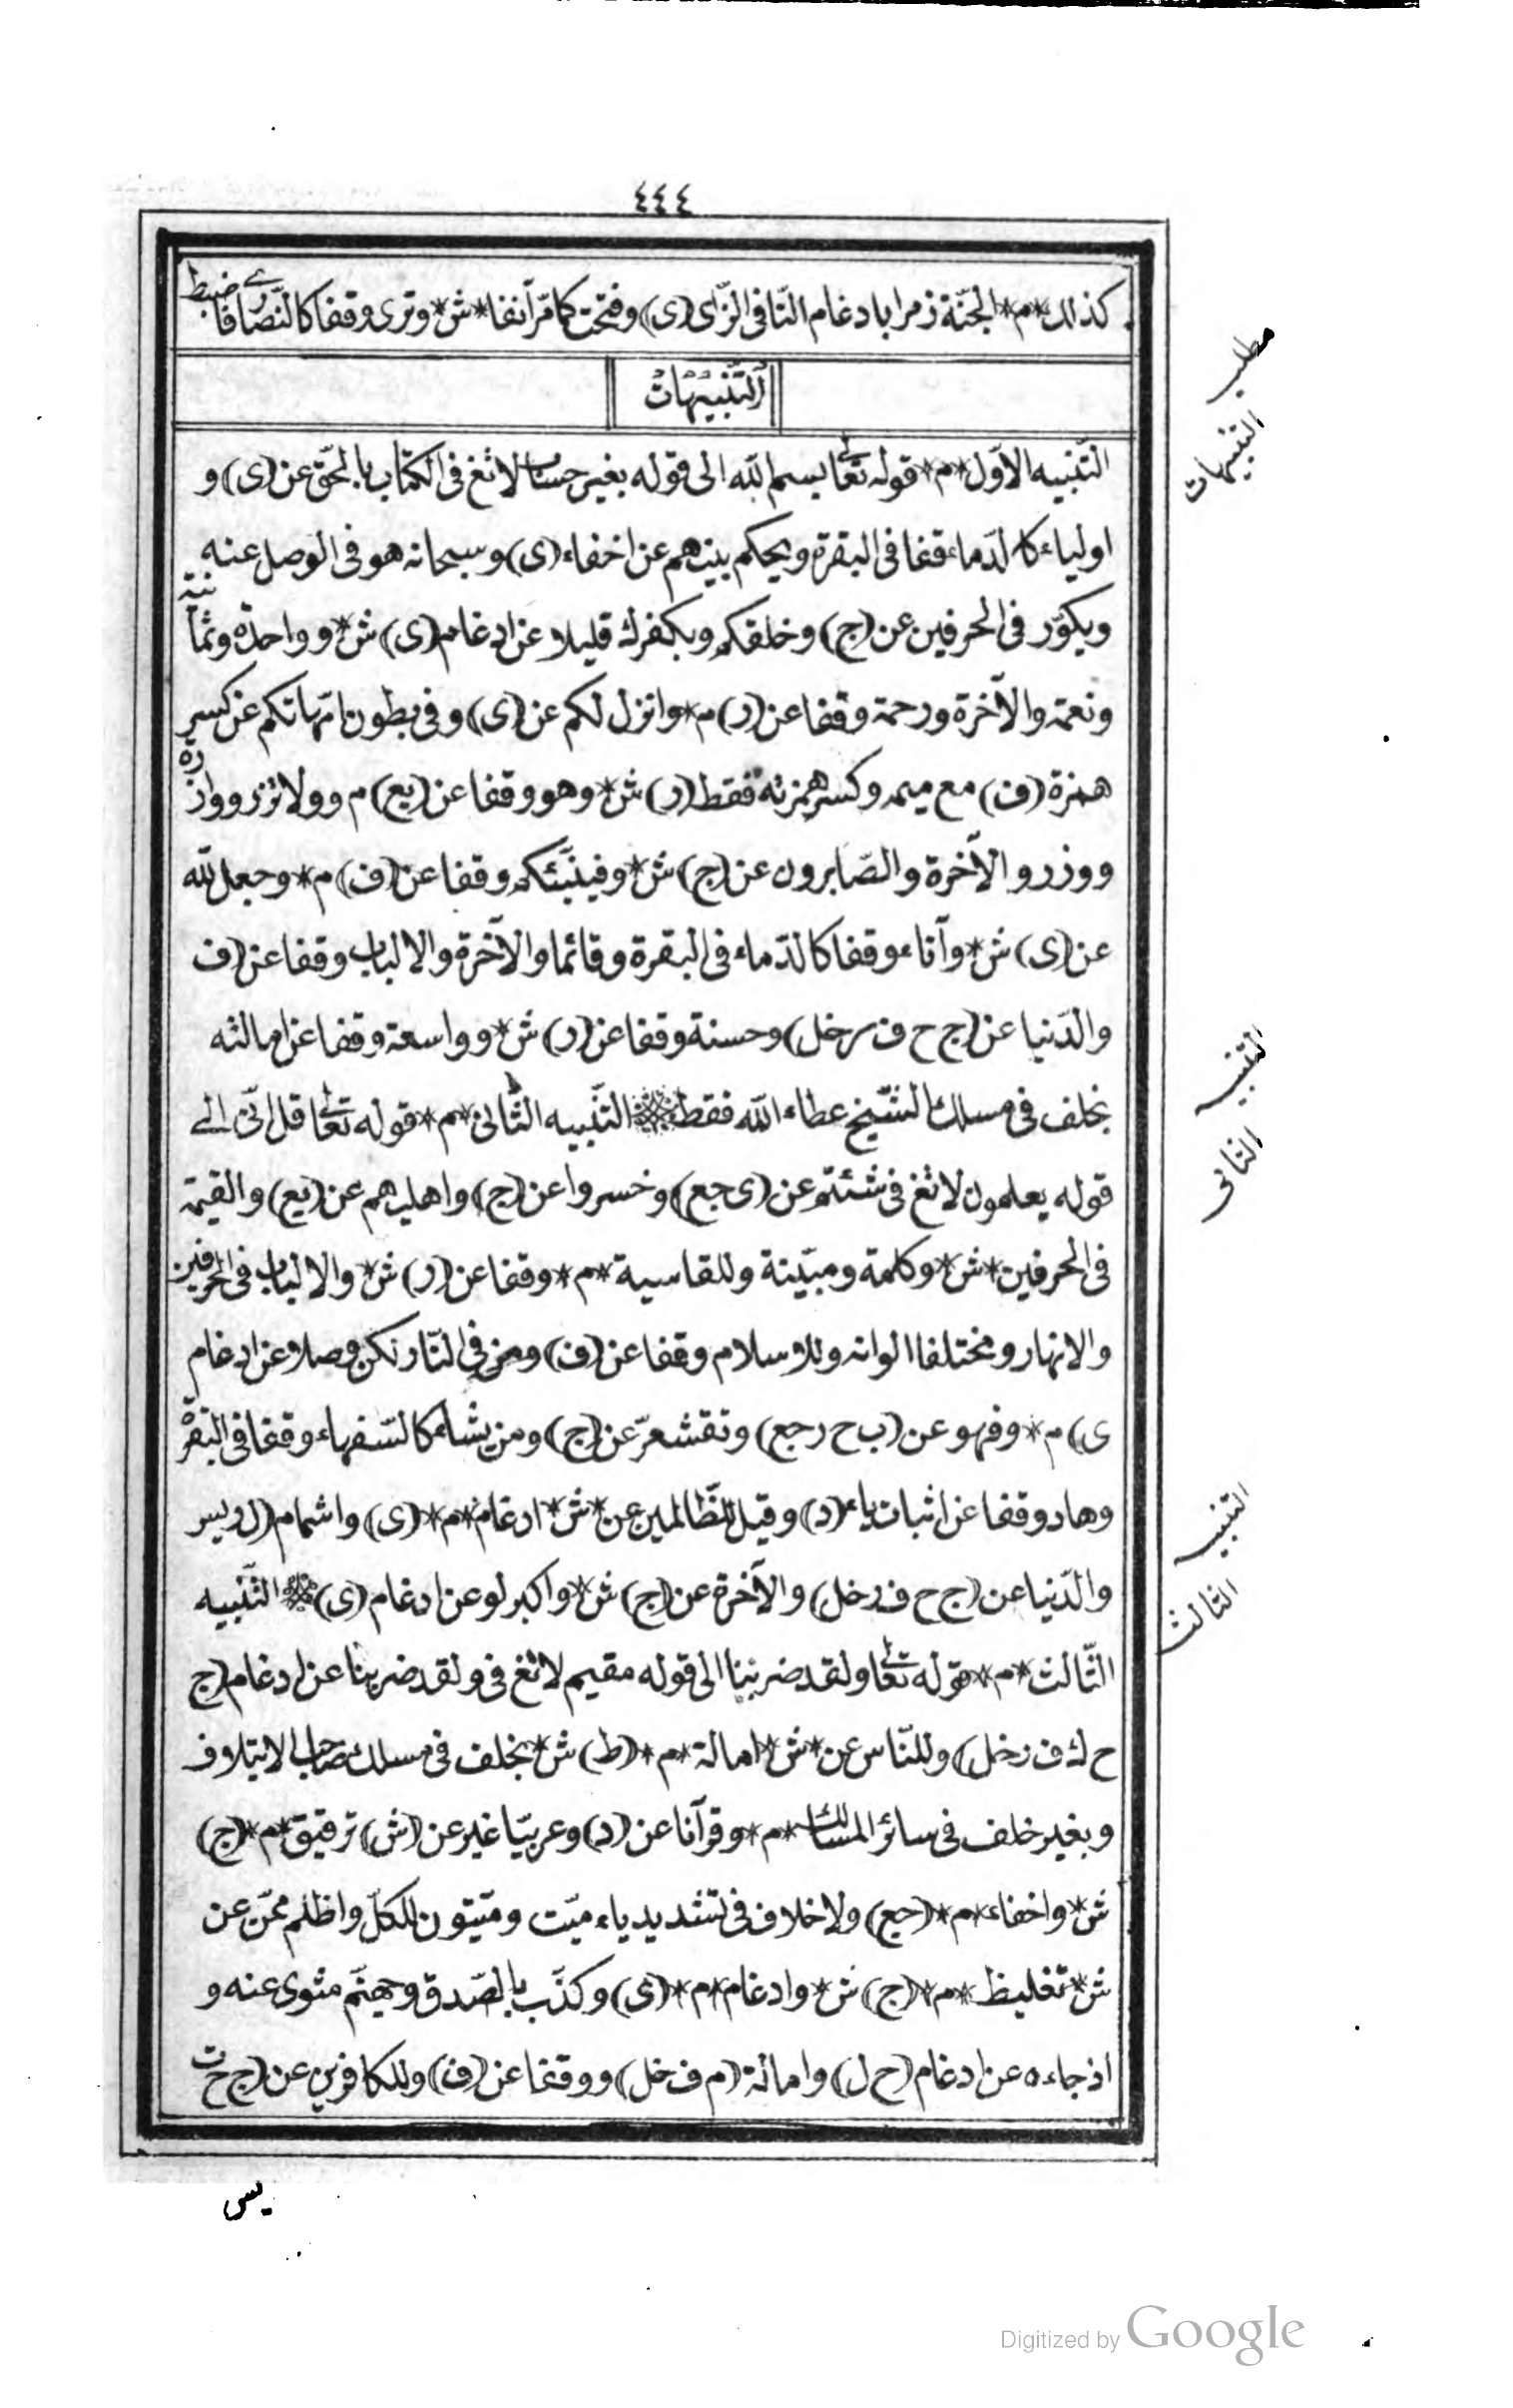 ٤٤٤
كذلك * م * الجنّة زمرا بادغام التّا فى الزّاى (ى) وفتحت كما مرّ آنفا * ش * وترى وقفا كالنّصارى فاضبط
التّنبيهات
مطلب
التنبيهات
التّنبيه الاوّل * م * قوله تعالى بسم اللّه الى قوله بغير حساب لا تغ فى الكتاب بالحّق عن (ى) و
اولياء كالدّماء وقفا فى البقرة ويحكم بينهم عن اخفاء (ى) وسبحانه هو فى الوصل عنه
ويكوّر فى الحرفين عن (ج) وخلقكم وبكفرك قليلا عن ادغام (ى) ش * وواحدة وثمانية
ونعمة والآخرة ورحمة وقفا عن (ر) م * وانزل لكم عن (ى) وفى بطون امّهاتكم عن كسر
همزة (ف) مع ميمه وكسر همزته فقط (ر) ش * وهو وقفا عن (يع) م وولا تزر ووازرة
ووزر والآخرة والصّابرون عن (ج) ش * وفينبّئكم وقفا عن (ف) م * وجعل للّه
عن (ى) ش * وآناء وقفا كالدّماء فى البقرة وقائما والآخرة والالباب وقفا عن (ف
والدّنيا عن (ج ح ف ر خل) وحسنة وقفا عن (ر) ش * وواسعة وقفا عن امالته
بخلف فى مسلك الشّيخ عطاء اللّه فقط التّنبيه الثّانى * م * قوله تعالى قل انّى الى
التنبيه
الثانى
قوله يعلمون لا تغ فى شئتم عن (ى جع) وخسروا عن (ج) واهليهم عن (يع) والقيمة
فى الحرفين * ش * وكلمة ومبيّنة وللقاسية * م * وقفا عن (ر) ش * والالباب فى الحرفين
والانهار ومختلفا الوانه وللاسلام وقفا عن (ف) ومن فى النّار لكن وصلا عن ادغام
ى) م * وفهو عن (ب ح ر جع) وتقشعرّ عن (ج) ومن يشاء كالسّفهاء وقفا فى البقرة
وهاد وقفا عن اثبات ياء (د) وقيل للظّالمين عن * ش * ادغام * م * (ى) واشمام (ل ر يس
والدّنيا عن (ج ح ف ر خل) والآخرة عن (ج) ش * واكبر لو عن ادغام (ى) التّنبيه
التنبيه
الثالث
الثّالث * م * قوله تعالى ولقد ضربنا الى قوله مقيم لا تغ فى ولقد ضربنا عن ادغام (ج
ح ك ف ر خل) وللنّاس عن * ش * امالة * م * (ط) ش * بخلف فى مسلك صاحب الايتلاف
وبغير خلف فى سائر المسالك * م * وقرآنا عن (د) وعربيّا غير عن (ش) ترقيق * م * (ج)
ش * واخفاء * م * (جع) ولا خلاف فى تشديد ياء ميّت وميّتون للكلّ واظلم ممّن عن
ش * تغليظ * م * (ج) ش * وادغام * م * (ى) وكذّب بالصّدق وجهنّم مثوى عنه و
اذ جاءه عن ادغام (ح ل) وامالة (م ف خل) ووقفا عن (ف) وللكافرين عن (ج ح ت
يس
Digitized by Google